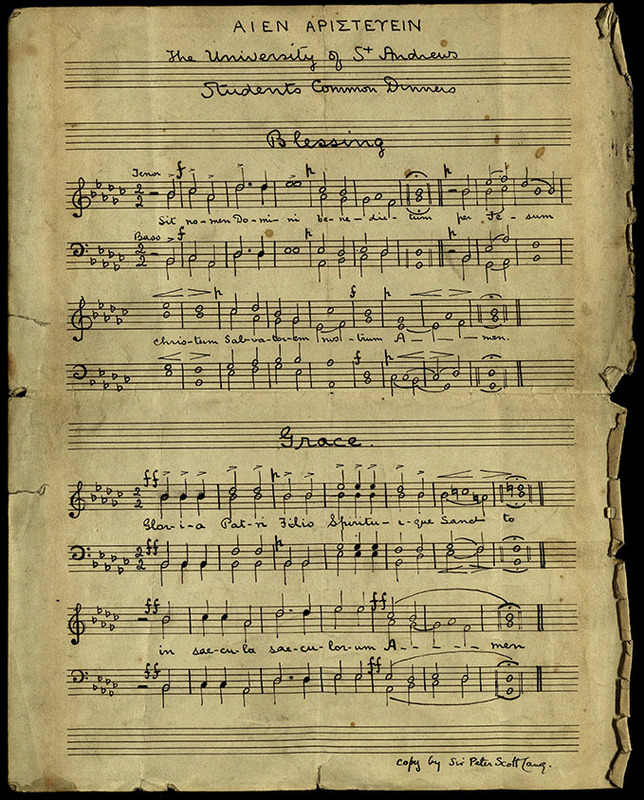 ΑΙΕΝ ΑΡΙΣΤΕΥΕΙΝ
The University of St Andrews
Students Common Dinners
Blessing
Tenor f p p
Sit no-men Do-mi-ni be-ne-dic-tum per Je-sum
Bass f p p
p f p
Chris-tum Sal-va-tor-em nos-trum A - - - men.
f p
Grace.
ff p
Glor-i-a Pat-ri Filio Spiritu-i-que Sanc to
ff p
ff ff
in sae-cu-la sae-cu-lor-um A - - - - men
ff ff
copy by Sir Peter Scott Lang.